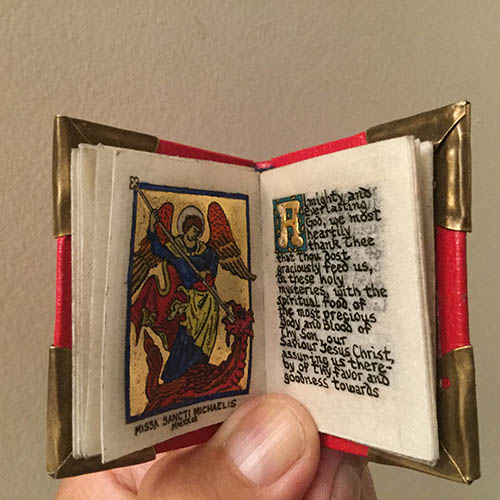 MISSA SANCTI MICHAELIS
Almighty and
everlasting
God, we most
heartily
thank thee
that thou dost
graciously feed us,
in these holy
mysteries, with the
spiritual food of
the most precious
Body and Blood of
Thy Son, our
Saviour Jesus Christ,
assuring us there-
by of thy favor and
goodness towards